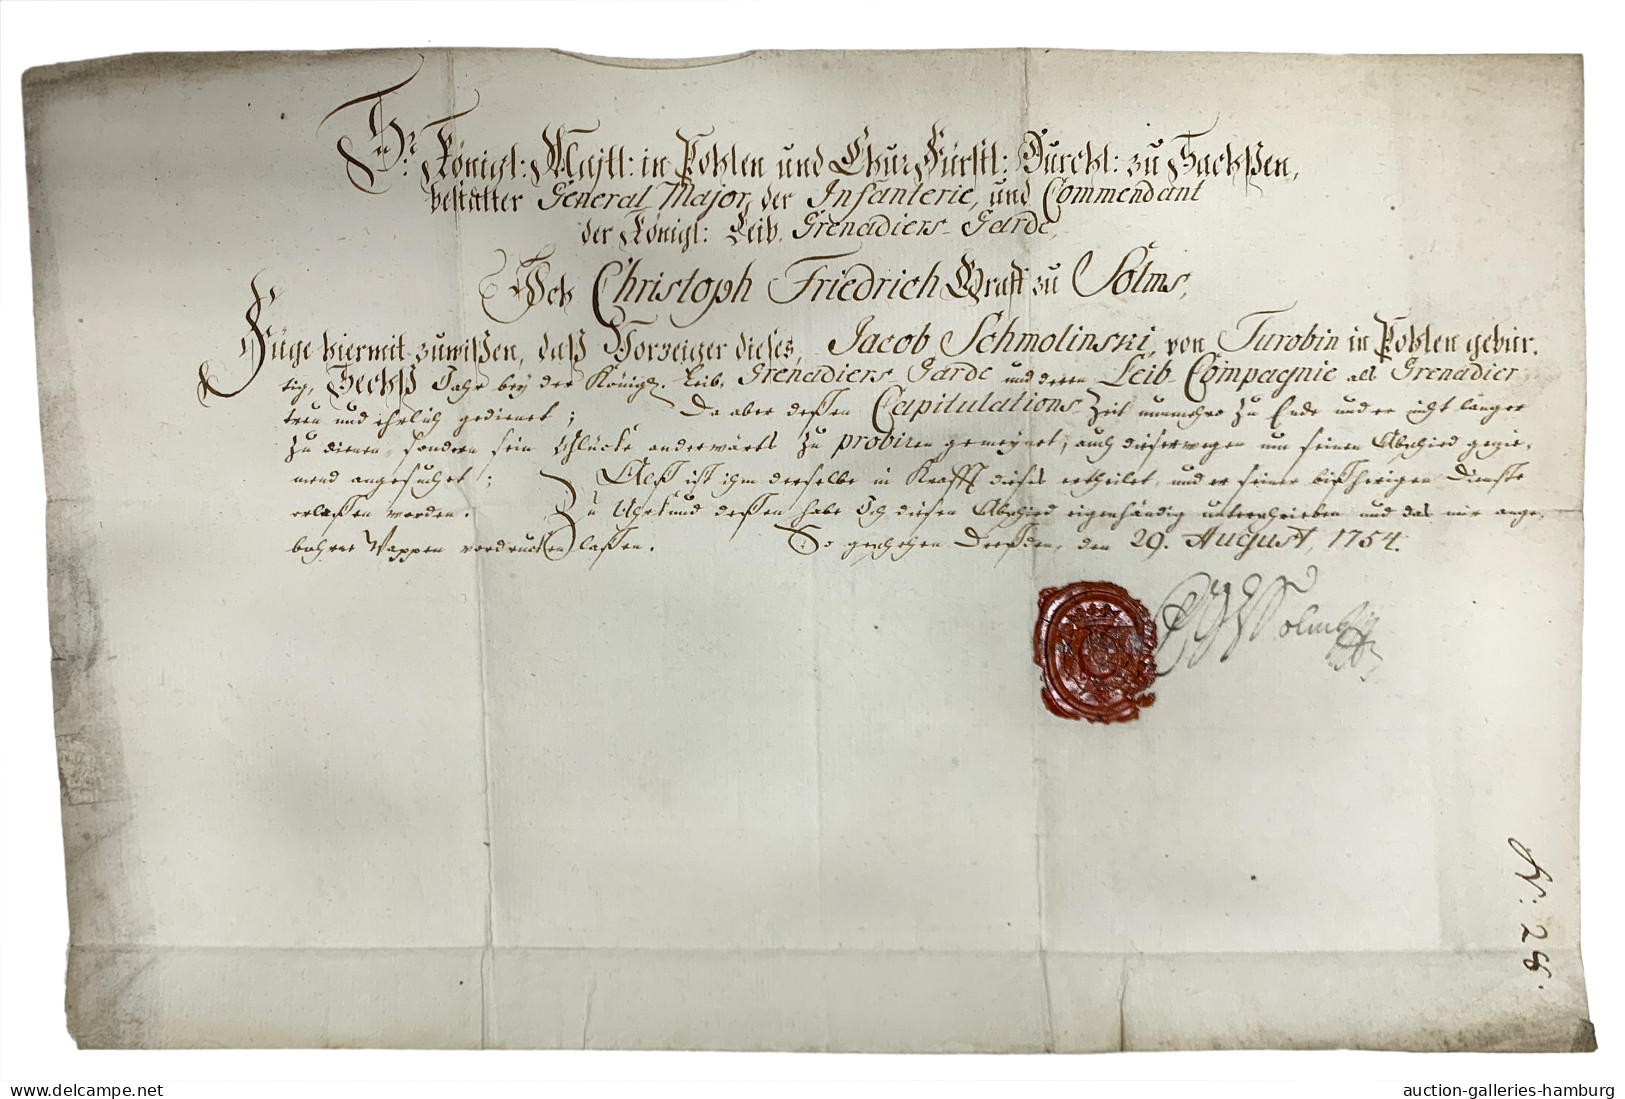 Sr. Königl: Majtl: in Pohlen und Chur Fürstl: Durchl: zu Sachßen,
bestalter General Major, der Infanterie, und Commendant
der Königl: Leib. Grenadiers-Garde,
Ich Christoph Friedrich Graff zu Solms,
Füge hiermit zuwißen, daß Vorzeiger dieses, Jacob Schmolinski, von Turobin in Pohlen gebür.
tig, Sechß Jahr bey der Königl. Leib. Grenadiers Garde und deren Leib Compagnie als Grenadier
treu und ehrlich gedienet; Da aber deßen Capitulations Zeit nunmehro zu Ende und er nicht länger
zu dienen, sondern sein Glücke anderwärts zu probiren gemeynet, auch dieserwegen um seinen Abschied gezie-
mend angesuchet; Alß ist ihm derselbe in Krafft dieses ertheilet, und er seiner bißherigen Dienste
erlaßen worden. Zu Uhrkund deßen habe Ich diesen Abschied eigenhändig unterschrieben und das mir ange-
bohrne Wappen vordrucken laßen. So geschehen Dreßden, den 29. August, 1754.
Solms
N: 28.
www.delcampe.net
auction-galleries-hamburg